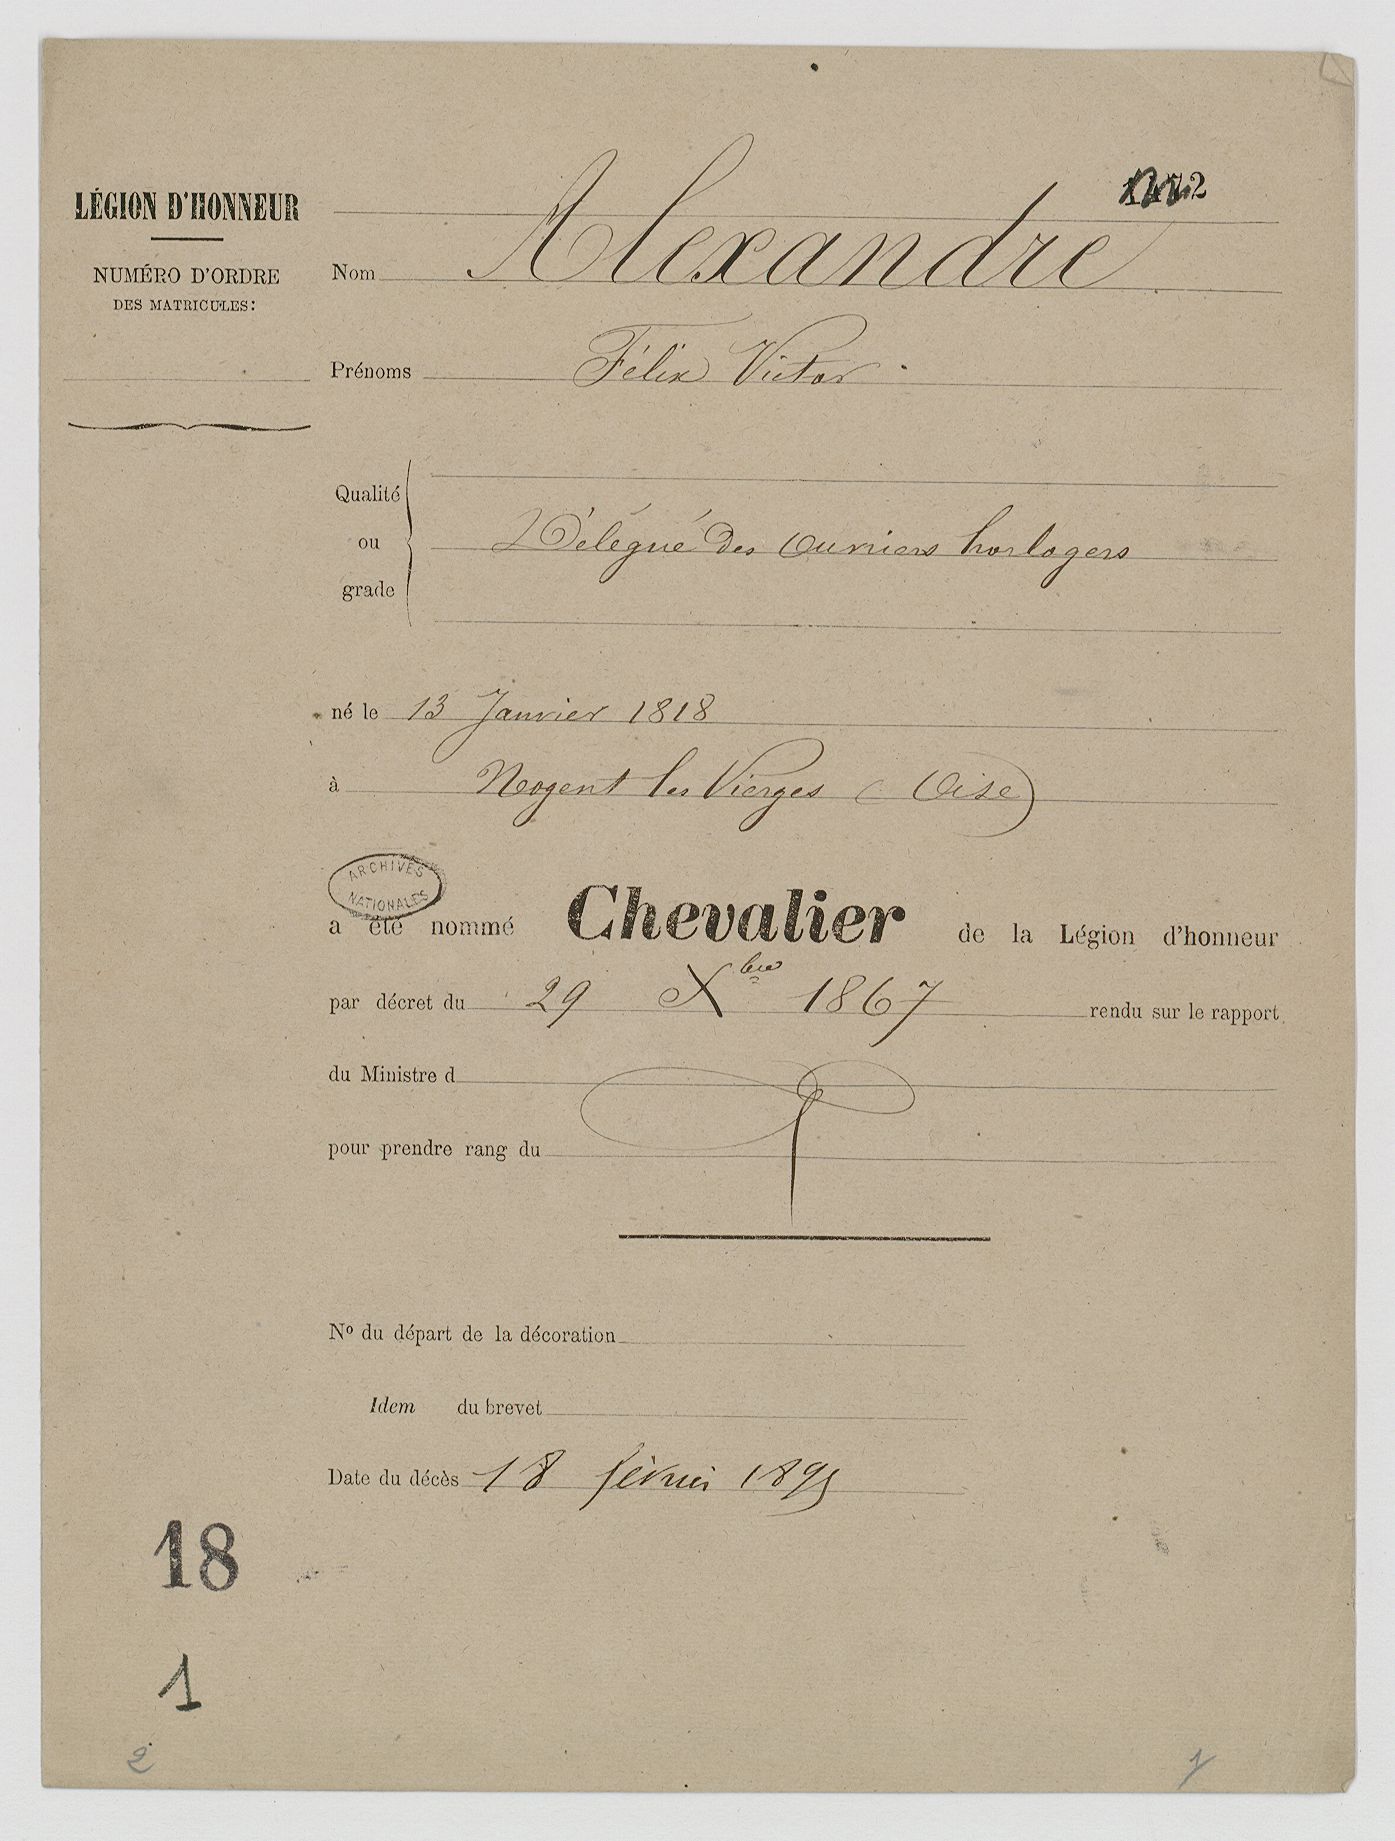 LÉGION D'HONNEUR
NUMÉRO D'ORDRE
DES MATRICULES:
Nom Alexandre
Prénoms Félix Victor
Qualité
ou
grade
Délégué des Ouvriers horlogers
né le 13 Janvier 1818
à Nogent les Vierges (Oise)
ARCHIVES
NATIONALES
a été nommé Chevalier de la Légion d'honneur
par décret du 29 Xbre 1867 rendu sur le rapport
du Ministre d
pour prendre rang du
No du départ de la décoration
Idem du brevet
Date du décès 18 février 1895
18
1
2
1